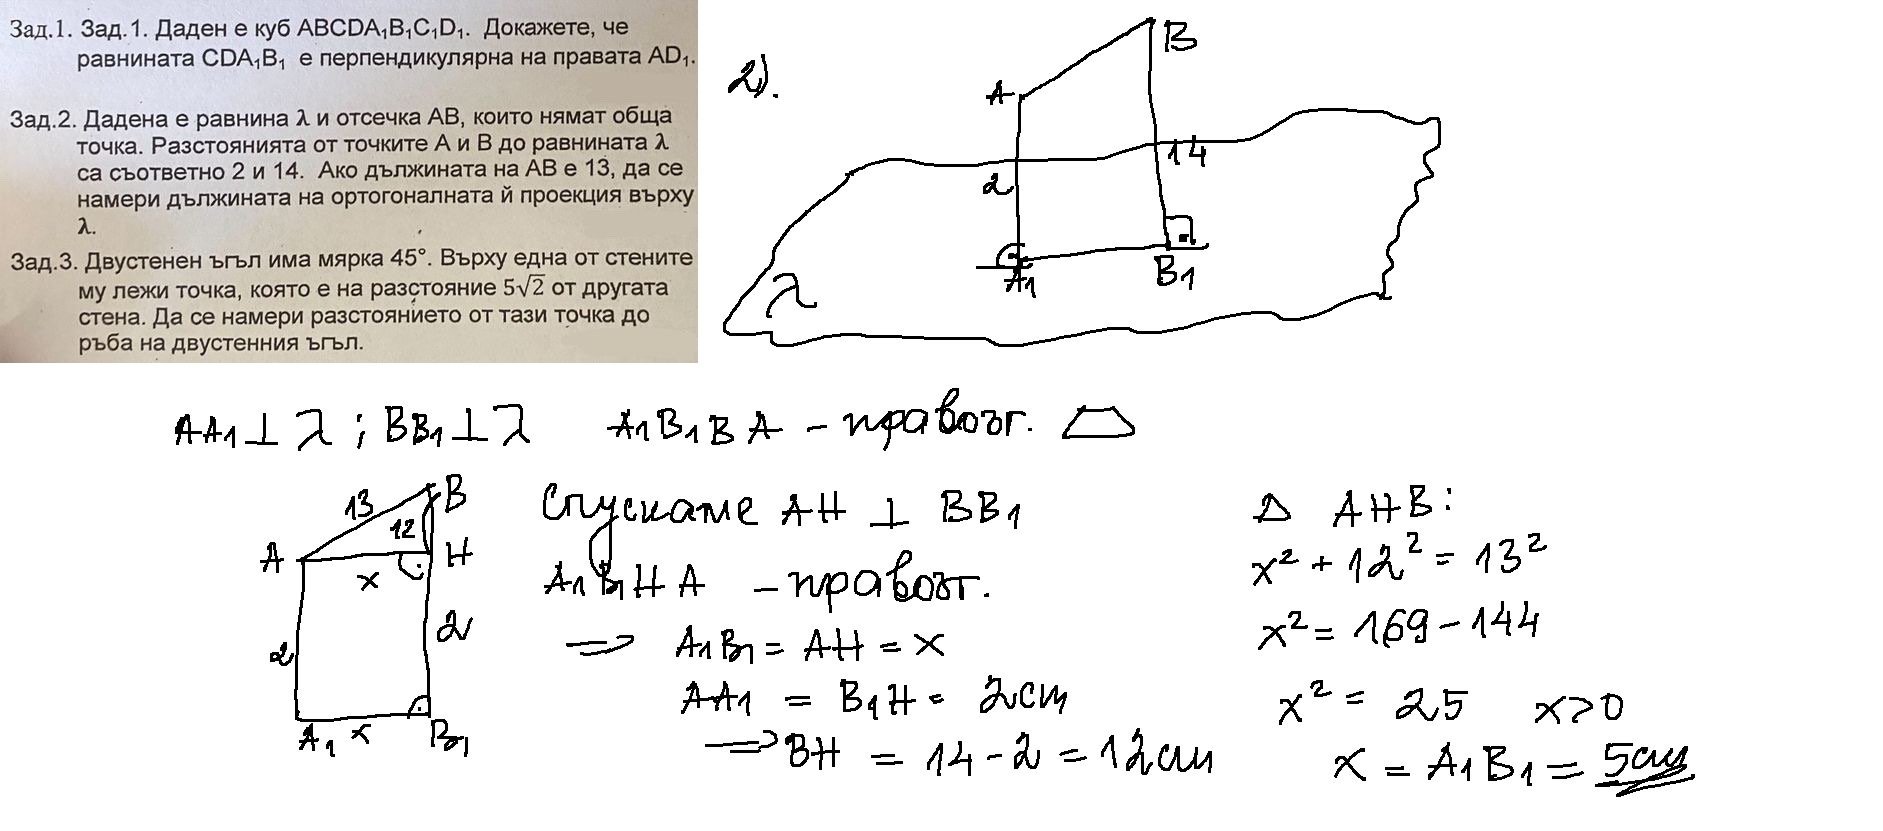 Зад.1. Зад.1. Даден е куб ABCDA₁B₁C₁D₁. Докажете, че
равнината CDA₁B₁ е перпендикулярна на правата AD₁.
Зад.2. Дадена е равнина λ и отсечка AB, които нямат обща
точка. Разстоянията от точките A и B до равнината λ
са съответно 2 и 14. Ако дължината на AB е 13, да се
намери дължината на ортогоналната й проекция върху
λ.
Зад.3. Двустенен ъгъл има мярка 45°. Върху една от стените
му лежи точка, която е на разстояние 5√2 от другата
стена. Да се намери разстоянието от тази точка до
ръба на двустенния ъгъл.
2).
B
A
14
2
A₁
B₁
λ
AA₁ ⊥ λ ; BB₁ ⊥ λ A₁B₁BA – правоъг.
B
13
12
A
H
x
2
2
A₁ x B₁
Спускаме AH ⊥ BB₁
A₁B₁HA – правоъг.
⇒ A₁B₁ = AH = x
AA₁ = B₁H = 2cm
⇒ BH = 14 - 2 = 12cm
Δ AHB:
x² + 12² = 13²
x² = 169 - 144
x² = 25 x>0
x = A₁B₁ = 5cm